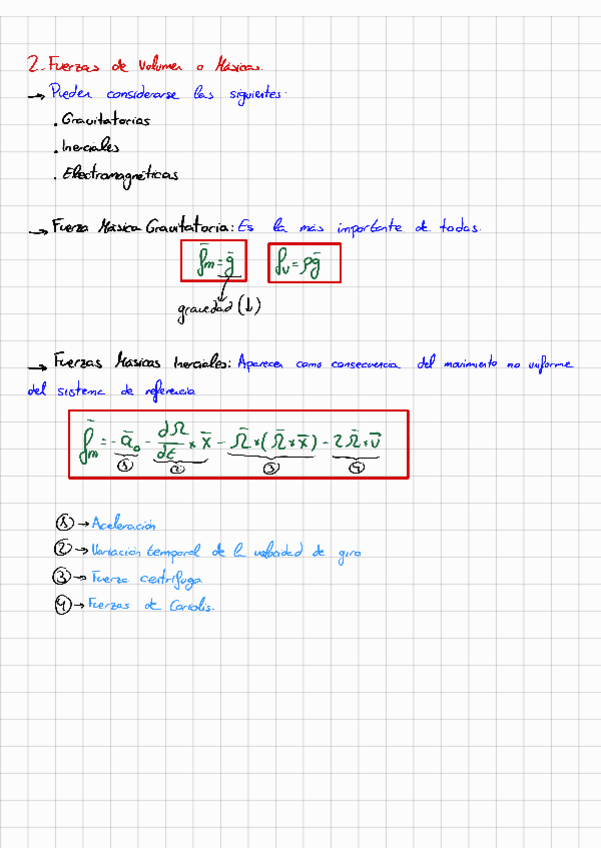 2. Fuerzas de Volumen o Másicas.
→ Pueden considerarse las siguientes:
. Gravitatorias
. Inerciales
. Electromagnéticas
→ Fuerza Másica Gravitatoria: Es la más importante de todas.
f̄m = ḡ    f̄v = ρḡ
gravedad (↓)
→ Fuerzas Másicas Inerciales: Aparecen como consecuencia del movimiento no uniforme
del sistema de referencia
f̄m = -ā₀ - dΩ/dt × x̄ - Ω̄ × (Ω̄ × x̄) - 2Ω̄ × v̄
① ② ③ ④
① → Aceleración
② → Variación temporal de la velocidad de giro
③ → Fuerza centrífuga
④ → Fuerzas de Coriolis.